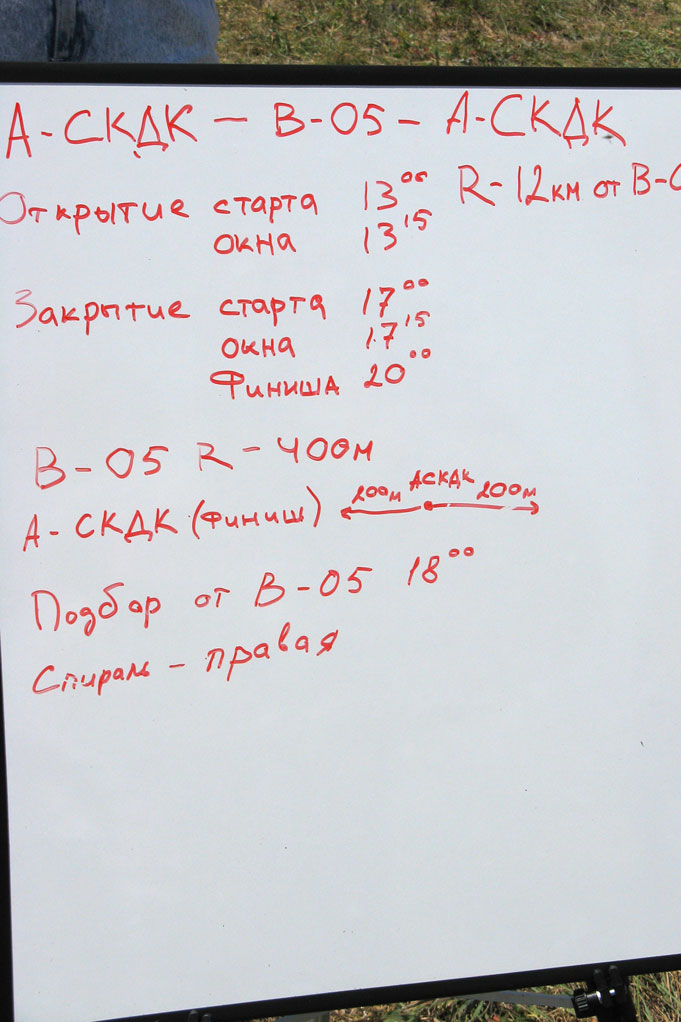 А-СКДК — В-05 — А-СКДК
Открытие старта 13⁰⁰ R-12км от В-
окна 13¹⁵
Закрытие старта 17⁰⁰
окна 17¹⁵
Финиша 20⁰⁰
В-05 R-400м
А-СКДК (финиш) 200м АСКДК 200м
Подбор от В-05 18⁰⁰
Спираль - правая